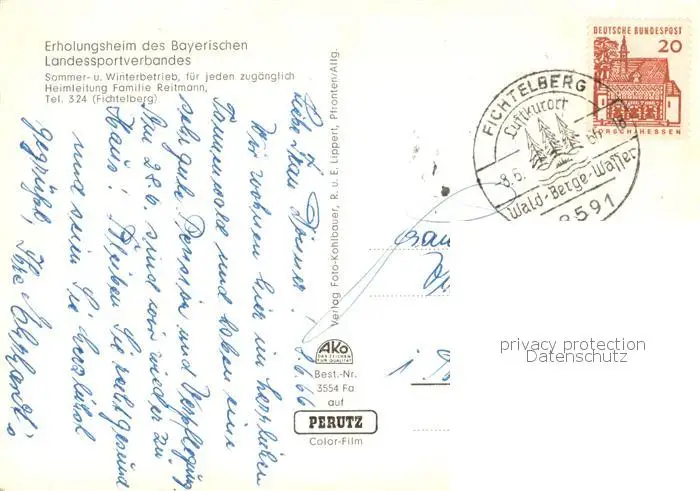 Erholungsheim des Bayerischen
Landessportverbandes
Sommer- u. Winterbetrieb, für jeden zugänglich
Heimleitung Familie Reitmann,
Tel. 324 (Fichtelberg)
8.6.66
Liebe Frau
Wir wohnen hier im herrlichen
Tannenwald und haben eine
sehr gute Pension und Verpflegung
Am 28.6. sind wir wieder zu
Haus! Bleiben Sie recht gesund
und seien Sie herzlichst
gegrüßt, Ihre
Verlag Foto-Kohlbauer, R. u. E. Lippert, Pfronten/Allg.
AKO
DAS ZEICHEN
FÜR QUALITÄT
Best.-Nr.
3554 Fa
auf
PERUTZ
Color-Film
DEUTSCHE BUNDESPOST
20
LORSCH/HESSEN
FICHTELBERG
Luftkurort
8.6.
Wald-Berge-Wasser
8591
privacy protection
Datenschutz